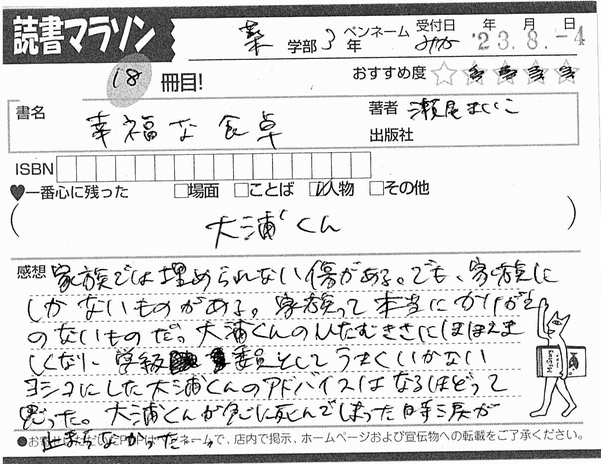 読書マラソン
薬 学部 3 年 ペンネーム みかか 受付日 年 月 日 '23.8.-4
18 冊目! おすすめ度 ☆★★★★
書名 幸福な食卓 著者 瀬尾まいこ
出版社
ISBN
♥一番心に残った □場面 □ことば ☑人物 □その他
( 大浦くん )
感想 家族では埋められない傷がある。でも、家族に
しかないものがある。家族って本当にかけがえ
のないものだ。大浦くんのひたむきさにほほえま
しくなり、学級委員としてうまくいかない
ヨシコにした大浦くんのアドバイスはなるほどって
思った。大浦くんが急に死んでしまった時涙が
止まらなかった…。
●お寄せいただいたPOPはペンネームで、店内で掲示、ホームページおよび宣伝物への転載をご了承ください。